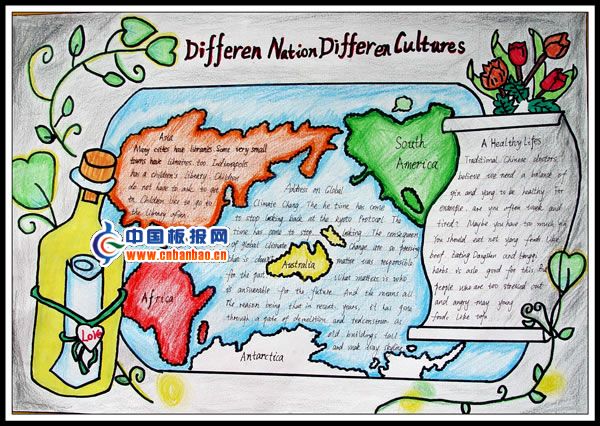 Differen Nation Differen Cultures
Asia
Many cities have libraries. Some very small
towns have libraries too. Indianapolis
has a children's library. Children
do not have to ask to get
to Children like to go to
the library often.
South
America
Address on Global
Climate Chang. The he time has come
to stop looking back at the Kyoto Protocol. The
time has come to stop looking. The consequences
of global climate Change are so pressing
that is doesn't matter was responsible
for the past. What matters is who
is answerable for the future. And the means all
The reason being that in recent years, it has gone
through a gate of demolition and reconstruction as
old buildings tall
and make way skyline
Australia
Africa
Antarctica
A Healthy Lifes
Traditional Chinese doctors
believe we need a balance of
yin and yang to be healthy. For
example, are you often weak and
tired? Maybe you have too much yin
You should eat hot yang foods like
beef. Eating Dangshen and Huangqi
herbs is aslo good for this. But
people who are too stressed out
and angry may yang
foods like tofu
Love
中国板报网
www.cnbanbao.cn